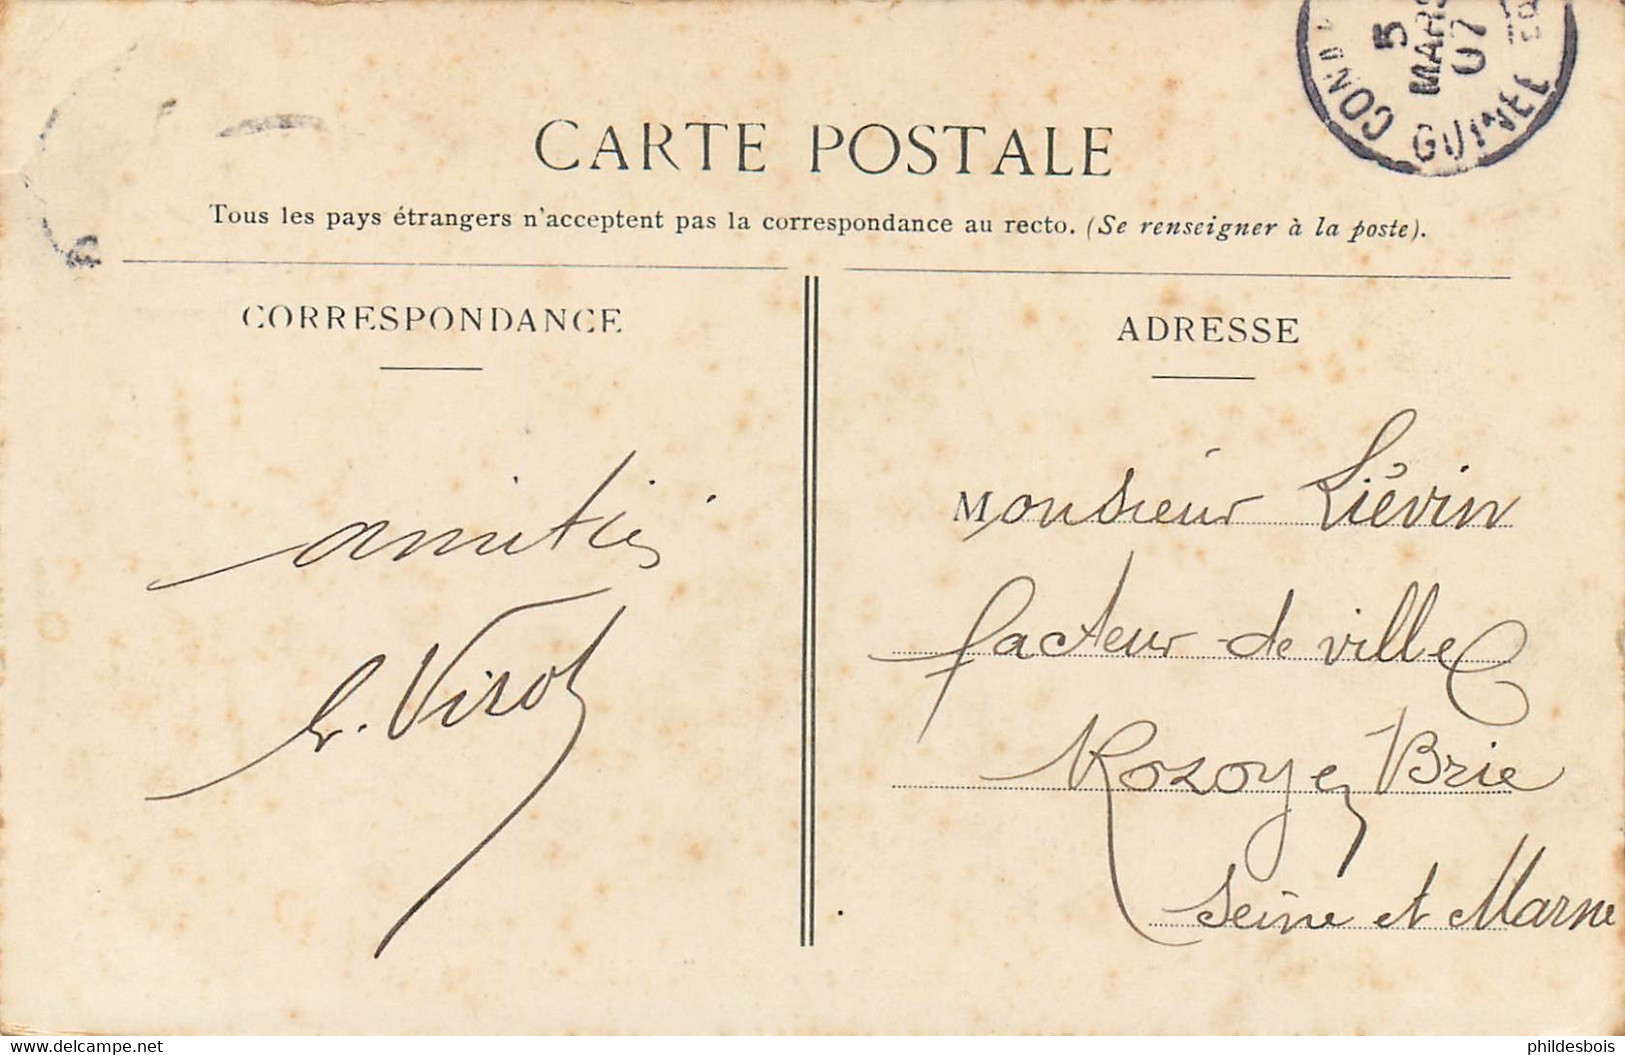 5
MARS
07
CONA
GUINEE
CARTE POSTALE
Tous les pays étrangers n'acceptent pas la correspondance au recto. (Se renseigner à la poste).
CORRESPONDANCE
ADRESSE
amitiés
Virot
Monsieur Liévin
facteur de ville
Rozoy en Brie
Seine et Marne
delcampe.net
phildesbois